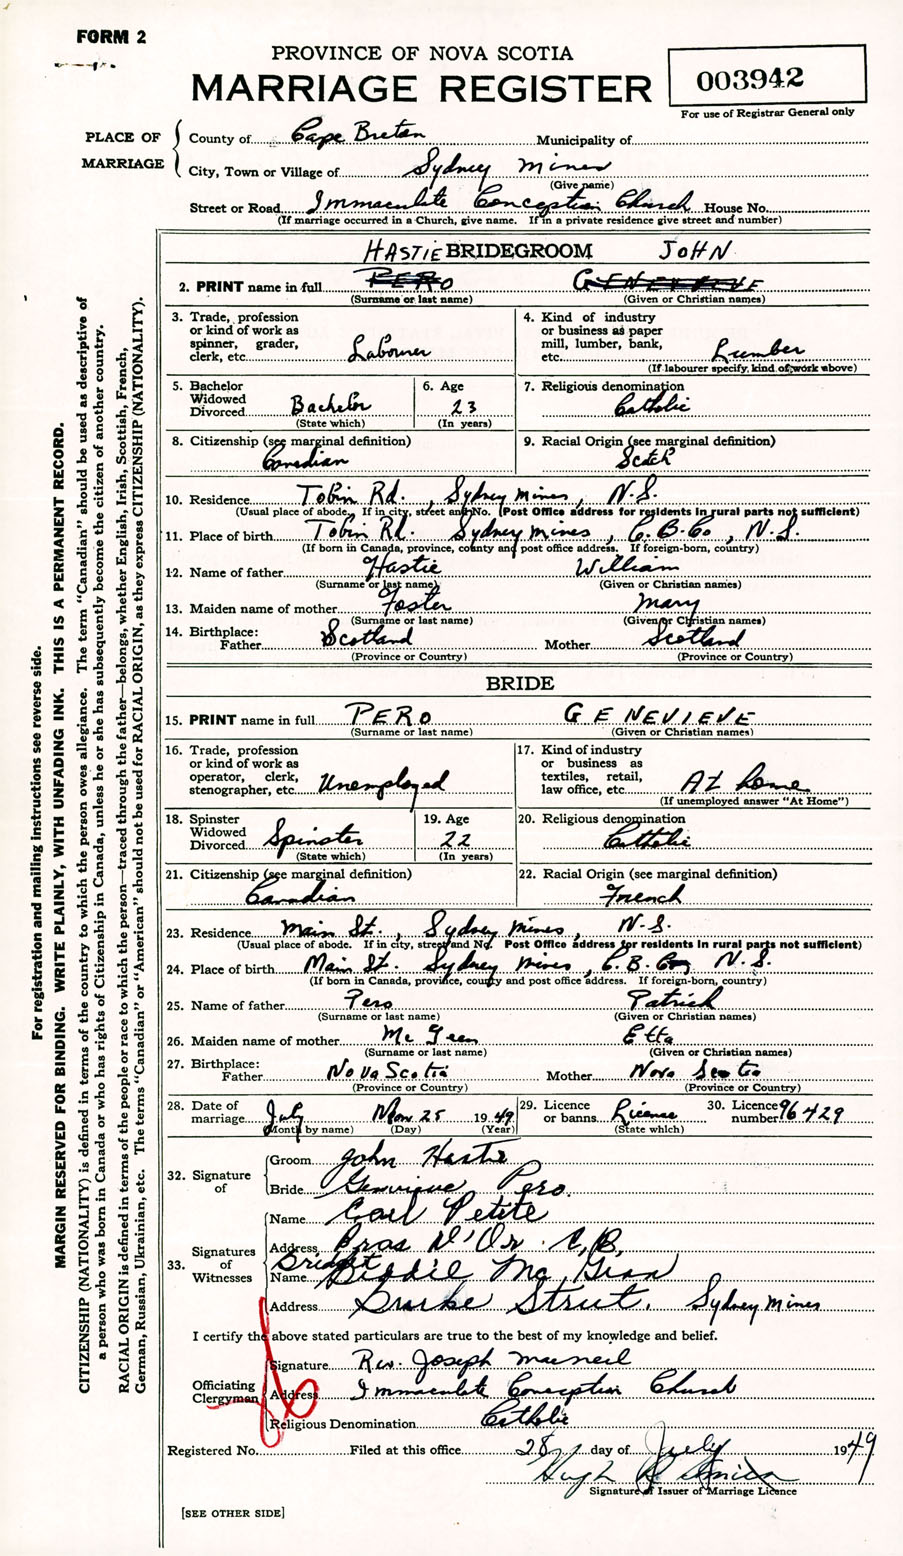 FORM 2
PROVINCE OF NOVA SCOTIA
MARRIAGE REGISTER
003942
For use of Registrar General only
PLACE OF MARRIAGE
County of Cape Breton Municipality of
City, Town or Village of Sydney Mines
(Give name)
Street or Road Immaculate Conception Church House No.
(If marriage occurred in a Church, give name. If in a private residence give street and number)
HASTIE BRIDEGROOM JOHN
2. PRINT name in full PERO GENEVIEVE
(Surname or last name) (Given or Christian names)
3. Trade, profession or kind of work as spinner, grader, clerk, etc. Labourer
4. Kind of industry or business as paper mill, lumber, bank, etc. Lumber
(If labourer specify, kind of work above)
5. Bachelor Widowed Divorced Bachelor
(State which)
6. Age 23
(In years)
7. Religious denomination Catholic
8. Citizenship (see marginal definition) Canadian
9. Racial Origin (see marginal definition) Scotch
10. Residence Tobin Rd., Sydney Mines, N.S.
(Usual place of abode. If in city, street and No. (Post Office address for residents in rural parts not sufficient)
11. Place of birth Tobin Rd. Sydney Mines, C.B.Co, N.S.
(If born in Canada, province, county and post office address. If foreign-born, country)
12. Name of father Hastie William
(Surname or last name) (Given or Christian names)
13. Maiden name of mother Foster Mary
(Surname or last name) (Given or Christian names)
14. Birthplace:
Father Scotland Mother Scotland
(Province or Country) (Province or Country)
BRIDE
15. PRINT name in full PERO GENEVIEVE
(Surname or last name) (Given or Christian names)
16. Trade, profession or kind of work as operator, clerk, stenographer, etc. Unemployed
17. Kind of industry or business as textiles, retail, law office, etc. At home
(If unemployed answer "At Home")
18. Spinster Widowed Divorced Spinster
(State which)
19. Age 22
(In years)
20. Religious denomination Catholic
21. Citizenship (see marginal definition) Canadian
22. Racial Origin (see marginal definition) French
23. Residence Main St., Sydney Mines, N.S.
(Usual place of abode. If in city, street and No. Post Office address for residents in rural parts not sufficient)
24. Place of birth Main St. Sydney Mines, C.B. N.S.
(If born in Canada, province, county and post office address. If foreign-born, country)
25. Name of father Pero Patrick
(Surname or last name) (Given or Christian names)
26. Maiden name of mother Mc Geen Etta
(Surname or last name) (Given or Christian names)
27. Birthplace:
Father Nova Scotia Mother Nova Scotia
(Province or Country) (Province or Country)
28. Date of marriage July Mon 25 1949
(Month by name) (Day) (Year)
29. Licence or banns License
(State which)
30. Licence number 96429
32. Signature of
Groom John Hastie
Bride Genevieve Pero.
33. Signatures of Witnesses
Name Petite
Address Bras D'Or. C.B.
Bridget
Name Biddie Mc
Address Sydney Mines
I certify the above stated particulars are true to the best of my knowledge and belief.
Officiating Clergyman
Signature Rev. Joseph MacNeil
Address Immaculate Conception Church
Religious Denomination Catholic
Registered No. Filed at this office 28 day of July 1949
Hugh
Signature of Issuer of Marriage Licence
[SEE OTHER SIDE]
For registration and mailing instructions see reverse side.
MARGIN RESERVED FOR BINDING. WRITE PLAINLY, WITH UNFADING INK. THIS IS A PERMANENT RECORD.
CITIZENSHIP (NATIONALITY) is defined in terms of the country to which the person owes allegiance. The term "Canadian" should be used as descriptive of
a person who was born in Canada or who has rights of Citizenship in Canada, unless he or she has subsequently become the citizen of another country.
RACIAL ORIGIN is defined in terms of the people or race to which the person—traced through the father—belongs, whether English, Irish, Scottish, French,
German, Russian, Ukrainian, etc. The terms "Canadian" or "American" should not be used for RACIAL ORIGIN, as they express CITIZENSHIP (NATIONALITY).